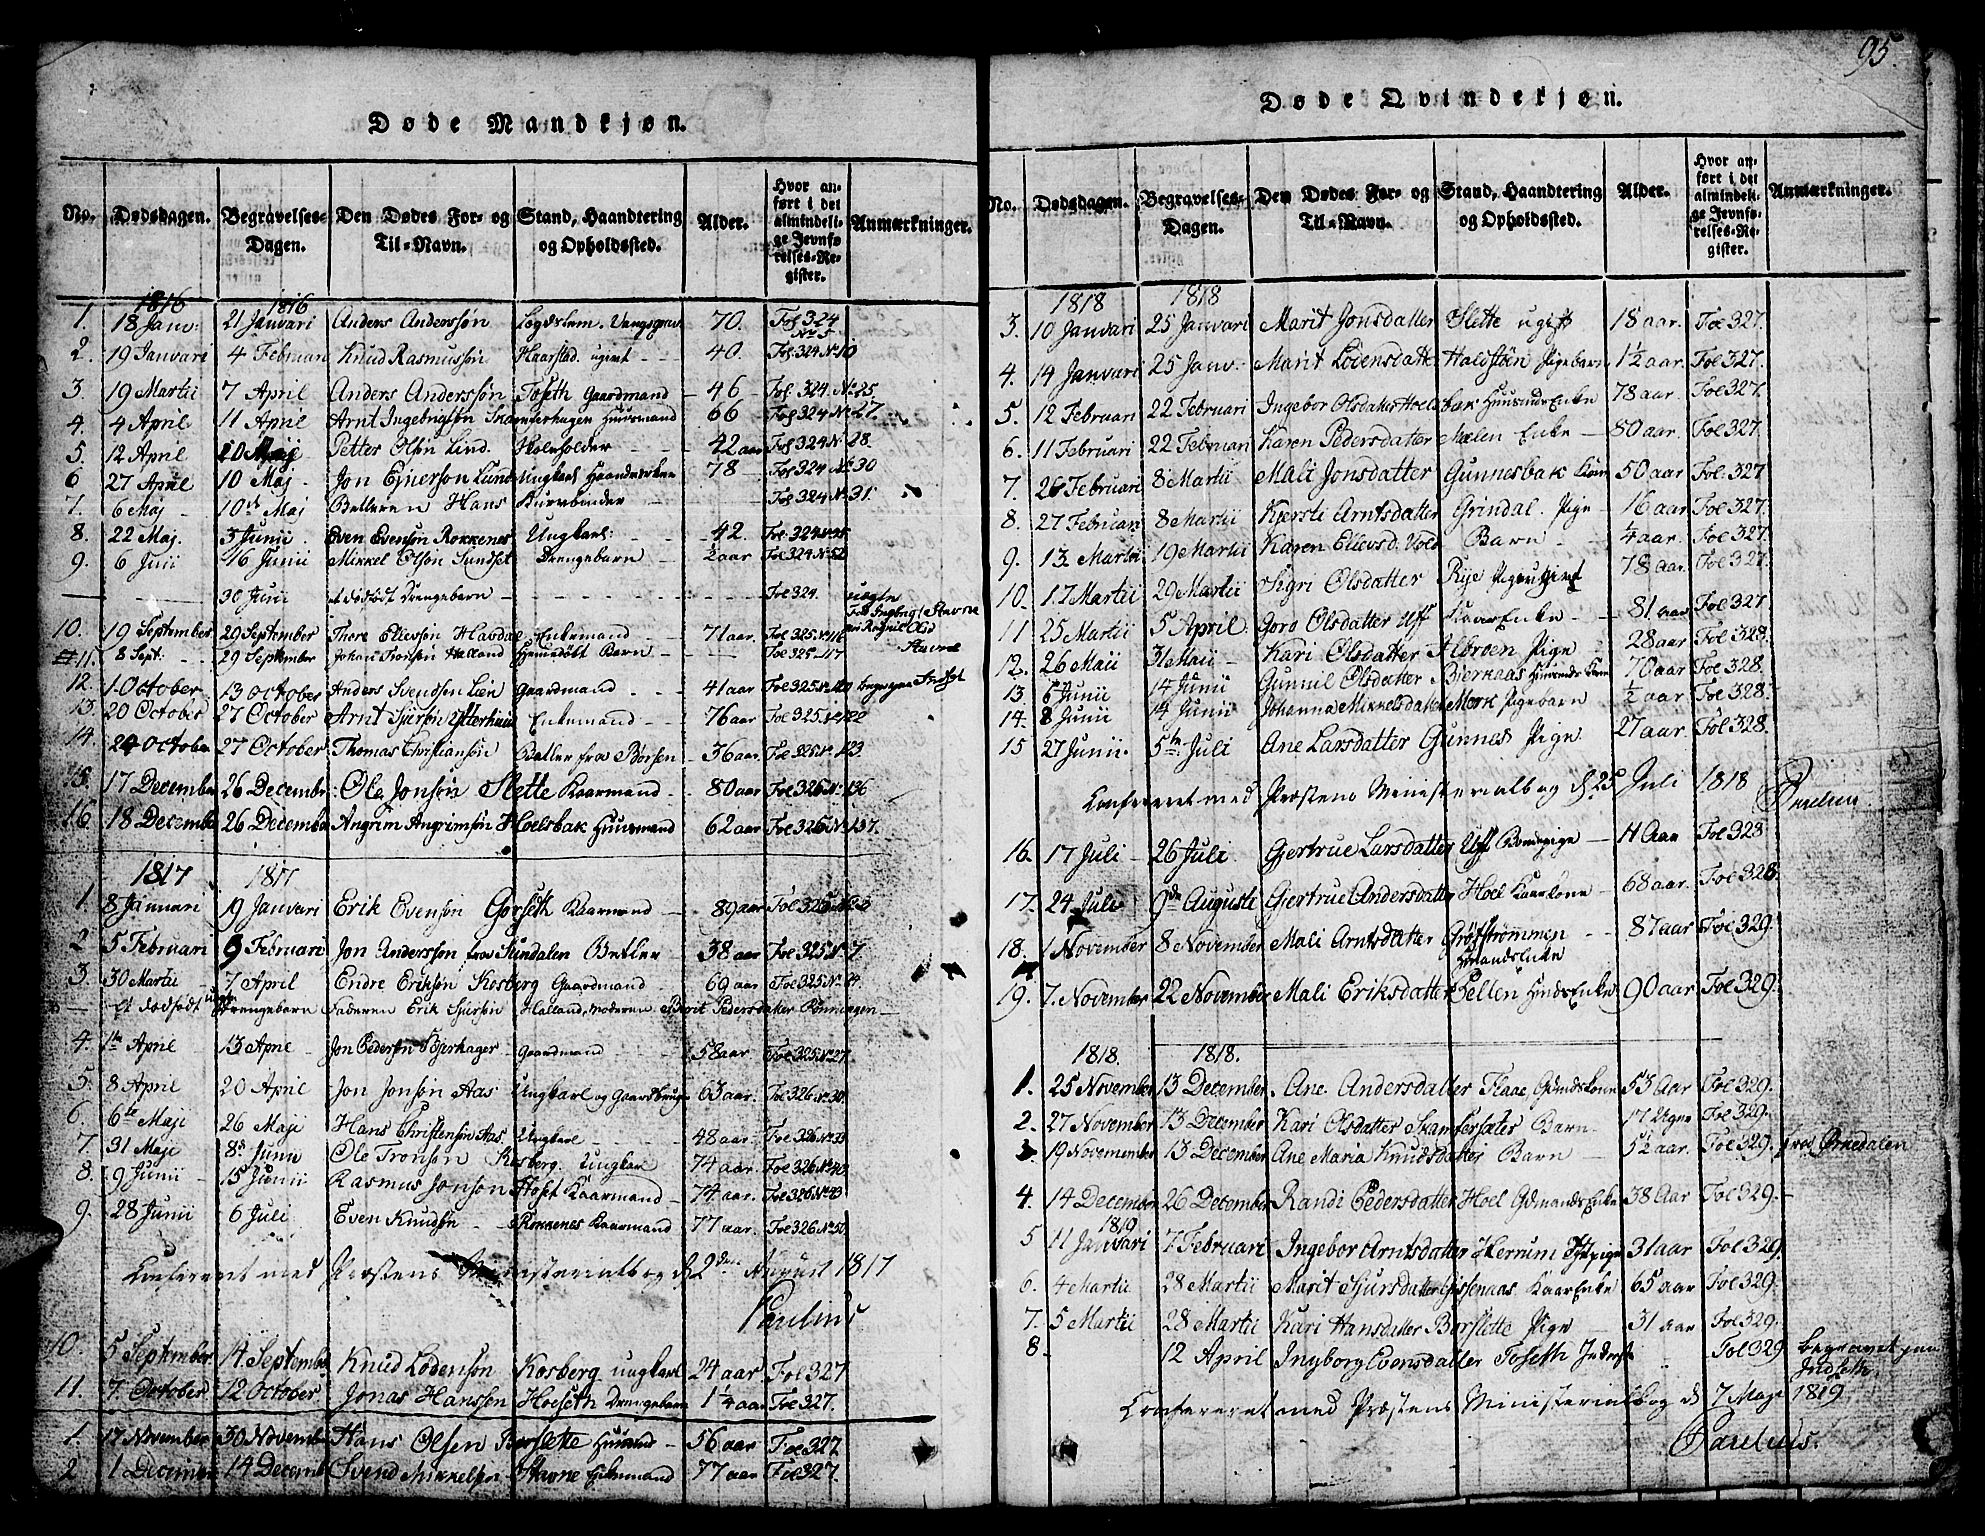 95.
Døde Mandkjøn.
No. Dødsdagen. Begravelses-Dagen. Den Dødes For- og Til-Navn. Stand, Haandtering og Opholdssted. Alder. Hvor anført i det almindelige Jevnførelses-Register. Anmærkninger.
1816 1816
1. 18 Janv: 21 Janvari Anders Anderssøn 70. Fol 324 No 5.
2. 19 Janvari 4 Februari Knud Rasmussøn Haarstad. ugivt 40. Fol: 324 No 10
3. 19 Martii 7 April Anders Anderssøn Toseth Gaardmand 46 Fol. 324. No 25.
4. 4 April 11 April Arnt Ingebrigtsøn Huusmand 66 Fol 324 No 27.
5. 12 April 10 Maji Petter Olsøn Lind. Skoleholder 42 aar Fol 324 No 28.
6 27 April 10 Maj Jon Ejnersøn Lund Ungkarl Haandværker 78 Fol 324 No 30
7. 6 Maj 10de Maj Betleren Hans Kurvebinder Fol 324 No 31.
8. 22 Maj. 3 Junii Even Evensøn Rokkenes Ungkarl: 42. Fol: 324 No 35
9. 6 Junii 16 Junii Mikkel Olsøn Sundset Drengebarn ½ aar Fol 324 No 52
30 Junii et dødfødt Drengebarn Fol 324. uægte
10. 19 September 29 September Thore Ellevsøn Havdal Enkemand 71 aar. Fol 325 No 116 Stavne
11. 8 Sept: 29 September Johan Tronsøn Halland Hjemmedøbt Barn Fol 325-117
12. 1 October 13 October Anders Svendsøn Lien Gaardmand 41 aar Fol 325 No 120
13. 20 October 27 October Arnt Sjursøn Ytterhuus Enkemand 76 aar Fol 325. No 122
14. 24 October 27 October Thomas Christiansøn Betler fra Børsen 36 aar Fol 325 No 123.
15. 17 December 26 December Ole Jonsøn Slette Kaarmand 80 aar Fol 326 No 136
16 18 December 26 December Angrim Angrimsøn Hoelsbak Huusmand 62 aar Fol 326 No 137.
1817 1817
1. 8 Januari 19 Janvari Erik Evensøn Gorseth Kaarmand 89 aar Fol 325
2 5 Februari 9 Februari Jon Anderssøn fra Sundalen Betler 38 aar Fol 325 No 7
3. 30 Martii 7 April Endre Eriksøn Kosberg Gaardmand 69 aar Fol 325 No 24
Et dødfødt uægte Drengebarn Faderen Erik Sjursøn Halland, Moderen Berit Pedersdatter Rønningen
4. 1te April 13 April Jon Pedersøn Bjerkager Gaardmand 58 aar Fol 325 No 27.
5. 8 April 20 April Jon Jonsøn Aas Ungkarl og Gaardbruger 63 aar. Fol 326 No 30.
6. 6te Maji 26 Maji Hans Christensøn Aas Ungkarl 48 aar Fol 326 No 33
7. 31 Maji 8de Junii Ole Tronsøn Kosberg. Ungkar 74 aar. Fol 326 No 40
8. 9 Junii 15 Junii Rasmus Jonsøn Hoset Kaarmand 74 aar. Fol 326 No 43
9. 28 Junii 6 Juli Even Knudsøn Rokkenes Kaarmand 77 aar. Fol 326 No 50
Confereret med Provstens Ministerialbog d. 9den August 1817
Paulinus
10. 5 September 14 September Knud Lodensøn Kosberg ungkarl 24 aar Fol 327
11. 7. October 12 October Jonas Hanssøn Hoeseth Drengebarn 1¼ aar Fol 327.
1. 17 November 30 November Hans Olsen Borslette Huusm 56 aar Fol 327
2 1 December 14 Decemb Svend Mikkelsøn Stavne Enkemand 77 aar Fol 327.
Døde Qvindekjøn.
No. Dødsdagen. Begravelses-Dagen. Den Dødes For- og Til-Navn. Stand, Haandtering og Opholdssted. Alder. Hvor anført i det almindelige Jevnførelses-Register. Anmærkninger.
1818 1818
3. 10 Janvari 25 Janvari Marit Jonsdatter Slette ugift 18 aar. Fol 327.
4. 14 Janvari 25 Janv. Marit Loiensdatt Haldstøn Pigebarn 1½ aar. Fol 327.
5. 12 Februari 22 Februari Ingebor Olsdatter Hoelsbak Huusmds Enke 78 aar. Fol 327.
6. 11 Februari 22 Februari Karen Pedersdatter Mælen Enke 80 aar. Fol 327.
7. 26 Februari 8 Martii Mali Jonsdatter Gunnesbak Kone 50 aar Fol 327.
8. 27 Februari 8 Martii Kjersti Arntsdatter Grindal. Pige 16 aar Fol 327.
9. 13. Martii 19 Martii Karen Ellevsd. Vold Barn ¼ aar. Fol 327.
10. 17 Martii 29 Martii Sigri Olsdatter Rise Pige ugivt 78 aar. Fol 327.
11 25 Martii 5 April Goro Olsdatter Uff Kaar Enke 81 aar Fol 327
12. 26 Maii 31 Maii Kari Olsdatter Albroen Pige 28 aar Fol 328.
13 6 Junii 14 Junii Gunnil Olsdatter Bierkaas Huusmds Kone 70 aar Fol 328.
14. 8 Junii 14 Junii Johanna Mikkelsdatter Mork Pigebarn ½ aar Fol 328.
15 27 Junii. 5te Juli Ane Larsdatter Gunnes Pige 27 aar. Fol 328.
Confereret med Provstens Ministerialbog d. 25 Juli 1818 Paulinus.
16. 17 Juli 26 Juli Gjertrue Larsdatter Uff Bondepige 11 Aar Fol 328
17. 24 Juli 9de Augusti Gjertrue Andersdatter Hoel Kaarkone 68 aar. Fol 328.
18. 1 November 8 November Mali Arntsdatter Grøtstrømmen Hmands Enke 87 aar Fol 329.
19. 7. November 22 November Mali Eriksdatter Hellen Hmds Enke 90 aar Fol 329.
1818 1818.
1. 25 November 13 December Ane Andersdatter Flaae Gdmdskone 53 Aar Fol 329.
2. 27 November 13 December Kari Olsdatter Skamfersæter Barn 17 Uger Fol 329.
3. 19 November 13 December Ane Maria Knudsdatter Barn 5½ aar. Fol 329. fra Ørkedalen
4. 14 December 26 December Randi Pedersdatter Hoel Gdmands Enke 38 Aar Fol 329.
1819
5 11 Janvari 7 Februari Ingebor Arntsdatter Herrum pige 31 aar Fol 329.
6. 4 Martii 28 Martii Marit Sjursdatter Gissenaas Kaar Enke 65 aar Fol 329.
7. 5 Martii 28 Martii Kari Hansdatter Borslette Pige 31 aar Fol 329.
8. 12 April Ingborg Evensdatter Toseth Fol 329 begravet paa Indseth.
Confereret med Provstens Ministerialbog d. 7 Maji 1819
Paulinus.